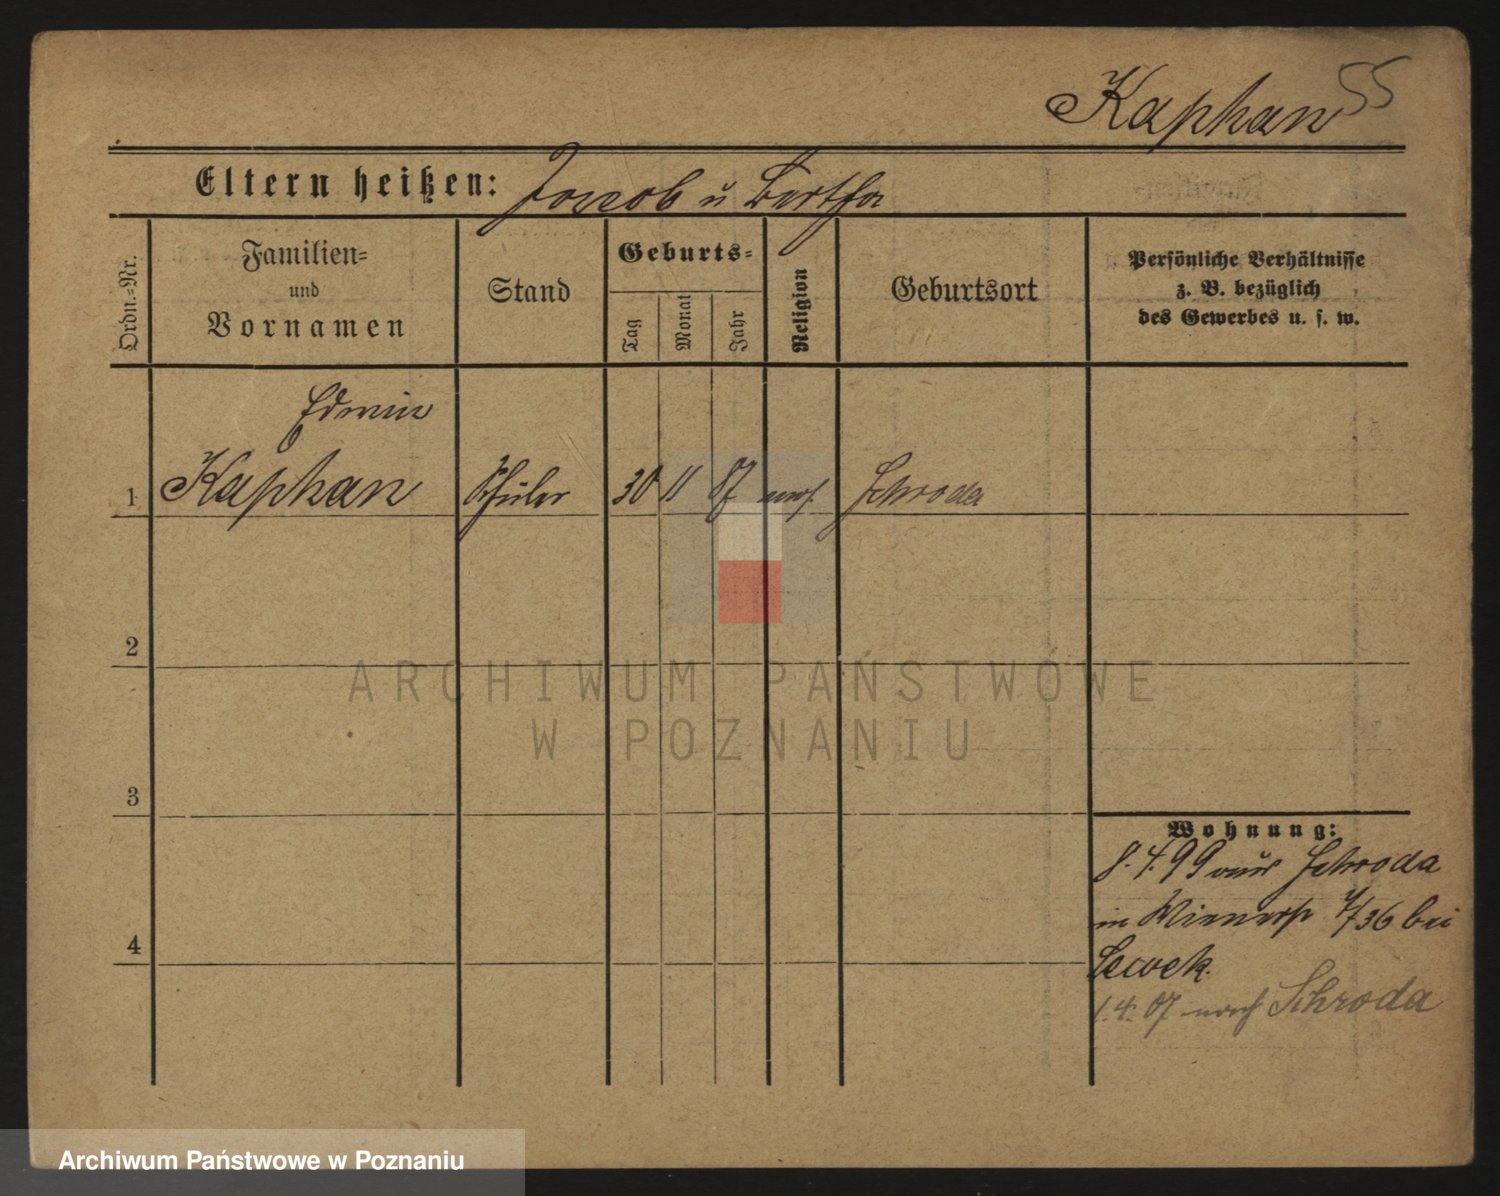 Kaphan 55
Eltern heißen: Jacob u Bertha
Ordn.-Nr.
Familien-
und
Vornamen
Stand
Geburts-
Tag
Monat
Jahr
Religion
Geburtsort
Persönliche Verhältnisse
z. B. bezüglich
des Gewerbes u. s. w.
Edwin
1 Kaphan Schüler 30 11 87 mos. Schroda
2
3
4
Wohnung:
8.4.99 aus Schroda
in Wienerstr 4/36 bei
1.4.07 nach Schroda
ARCHIWUM PAŃSTWOWE
W POZNANIU
Archiwum Państwowe w Poznaniu